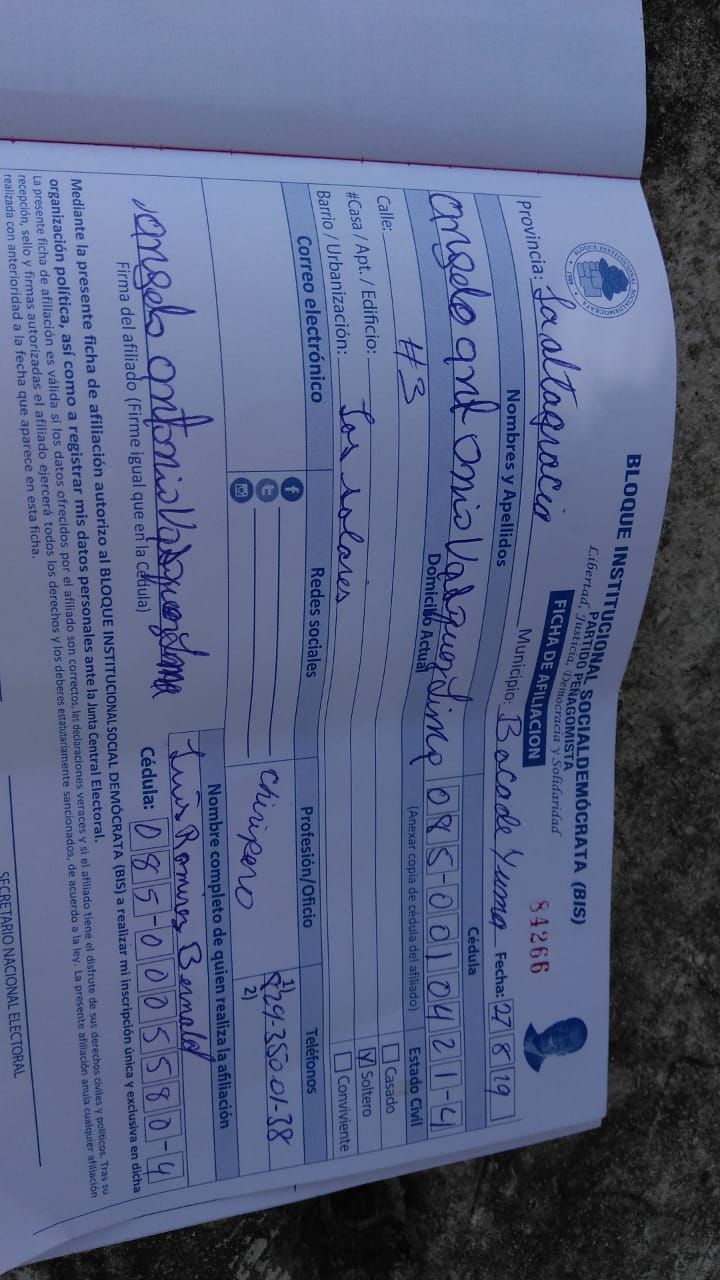 BLOQUE INSTITUCIONAL SOCIALDEMÓCRATA (BIS)
PARTIDO PEÑAGOMISTA
Libertad, Justicia, Democracia y Solidaridad
FICHA DE AFILIACION
84266
Provincia: La altagracia Municipio: Boca de Yuma Fecha: 27 8 19
Nombres y Apellidos Cédula
angelo antonio Vasquez Lima 085-0010421-4
(Anexar copia de cédula del afiliado)
Domicilio Actual Estado Civil
Calle: #3 Casado
#Casa / Apt. / Edificio: Soltero
Barrio / Urbanización: Los solares Conviviente
Correo electrónico Redes sociales Profesión/Oficio Teléfonos
chiripero 1) 829-3501-38
2)
Nombre completo de quien realiza la afiliación
angelo antonio Vasquez Lima Luis Ramires Bernald
Firma del afiliado (Firme igual que en la cédula) Cédula: 085-0005580-4
Mediante la presente ficha de afiliación autorizo al BLOQUE INSTITUCIONAL SOCIAL DEMÓCRATA (BIS) a realizar mi inscripción única y exclusiva en dicha
organización política, así como a registrar mis datos personales ante la Junta Central Electoral.
La presente ficha de afiliación es válida si los datos ofrecidos por el afiliado son correctos, las declaraciones veraces y si el afiliado tiene el disfrute de sus derechos civiles y políticos. Tras su
recepción, sello y firmas autorizadas el afiliado ejercerá todos los derechos y los deberes estatutariamente sancionados, de acuerdo a la ley. La presente afiliación anula cualquier afiliación
realizada con anterioridad a la fecha que aparece en esta ficha.
SECRETARIO NACIONAL ELECTORAL